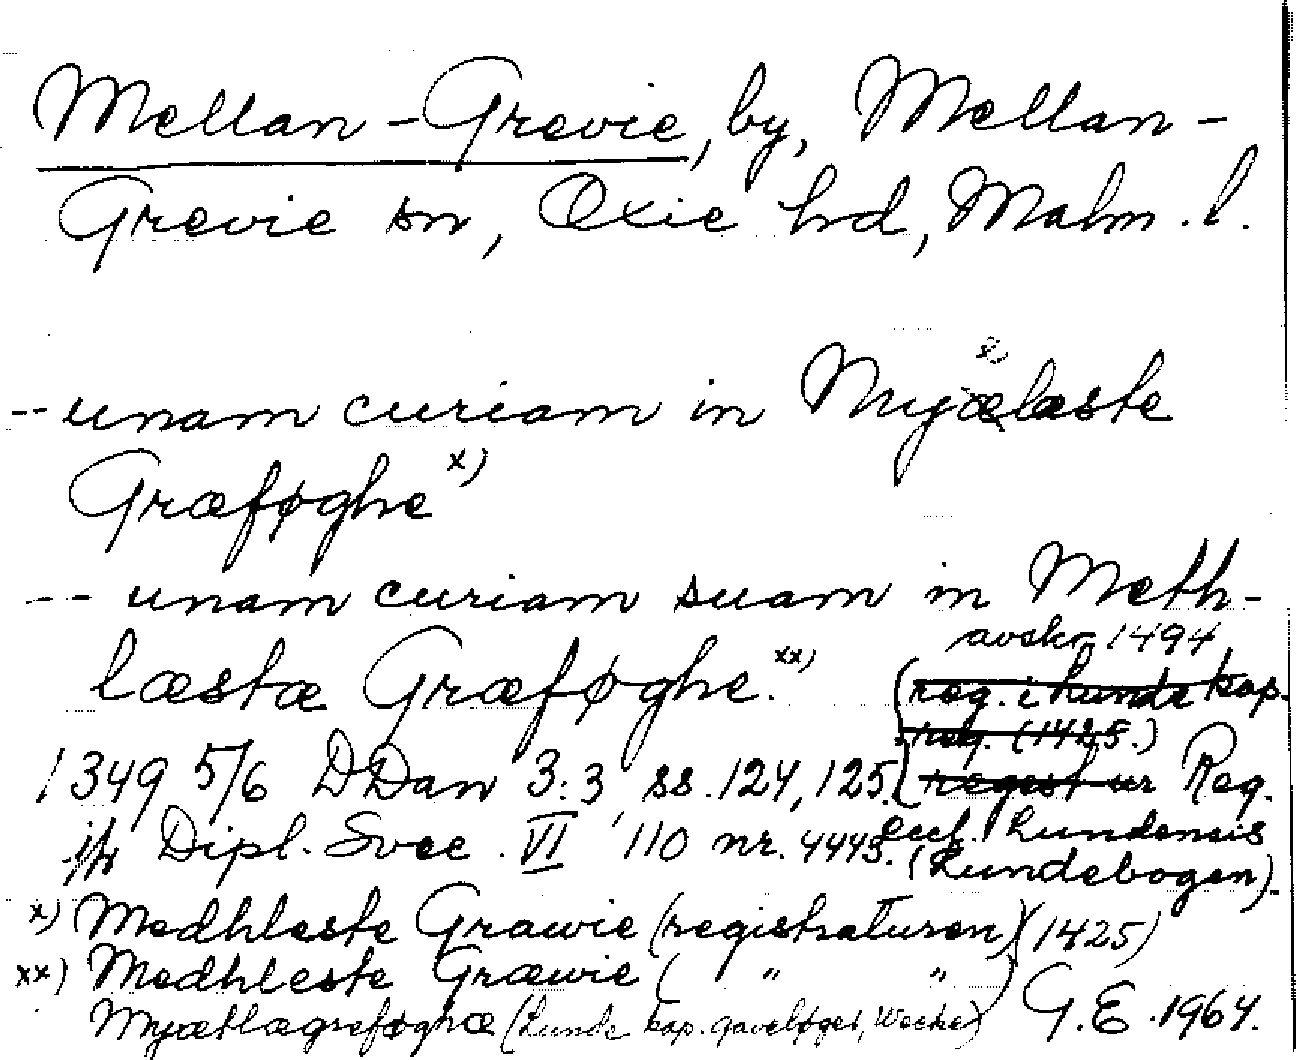 Mellan-Grevie, by, Mellan-
Grevie sn, Oxie hd, Malm. l.
-- unam curiam in Myælæste
Græføghe x)
-- unam curiam suam in Meth-
læstæ Græføghe. xx)
avskr. 1494
(reg. i Lunde kap.
reg. (1425.)
1349 5/6 DDan 3:3 ss. 124, 125. (regest ur Reg.
jfr Dipl. Svec. VI 110 nr. 4443. eccl. Lundensis
(Lundebogen).
x) Medhleste Grawie (registraturen) (1425)
xx) Medhleste Græwie ( " " )
Myætlægreføghæ (Lunde kap. gaveløger, Weeke) G.E. 1964.